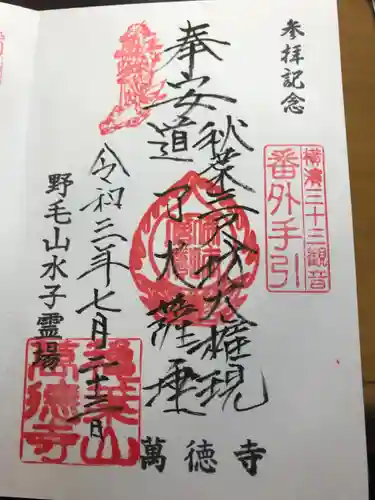 参拝記念
横濱三十三観音
番外手引
奉安
秋葉三尺坊大権現
道了大薩埵
令和三年七月二十三日
野毛山水子霊場
萬徳寺
萬徳寺